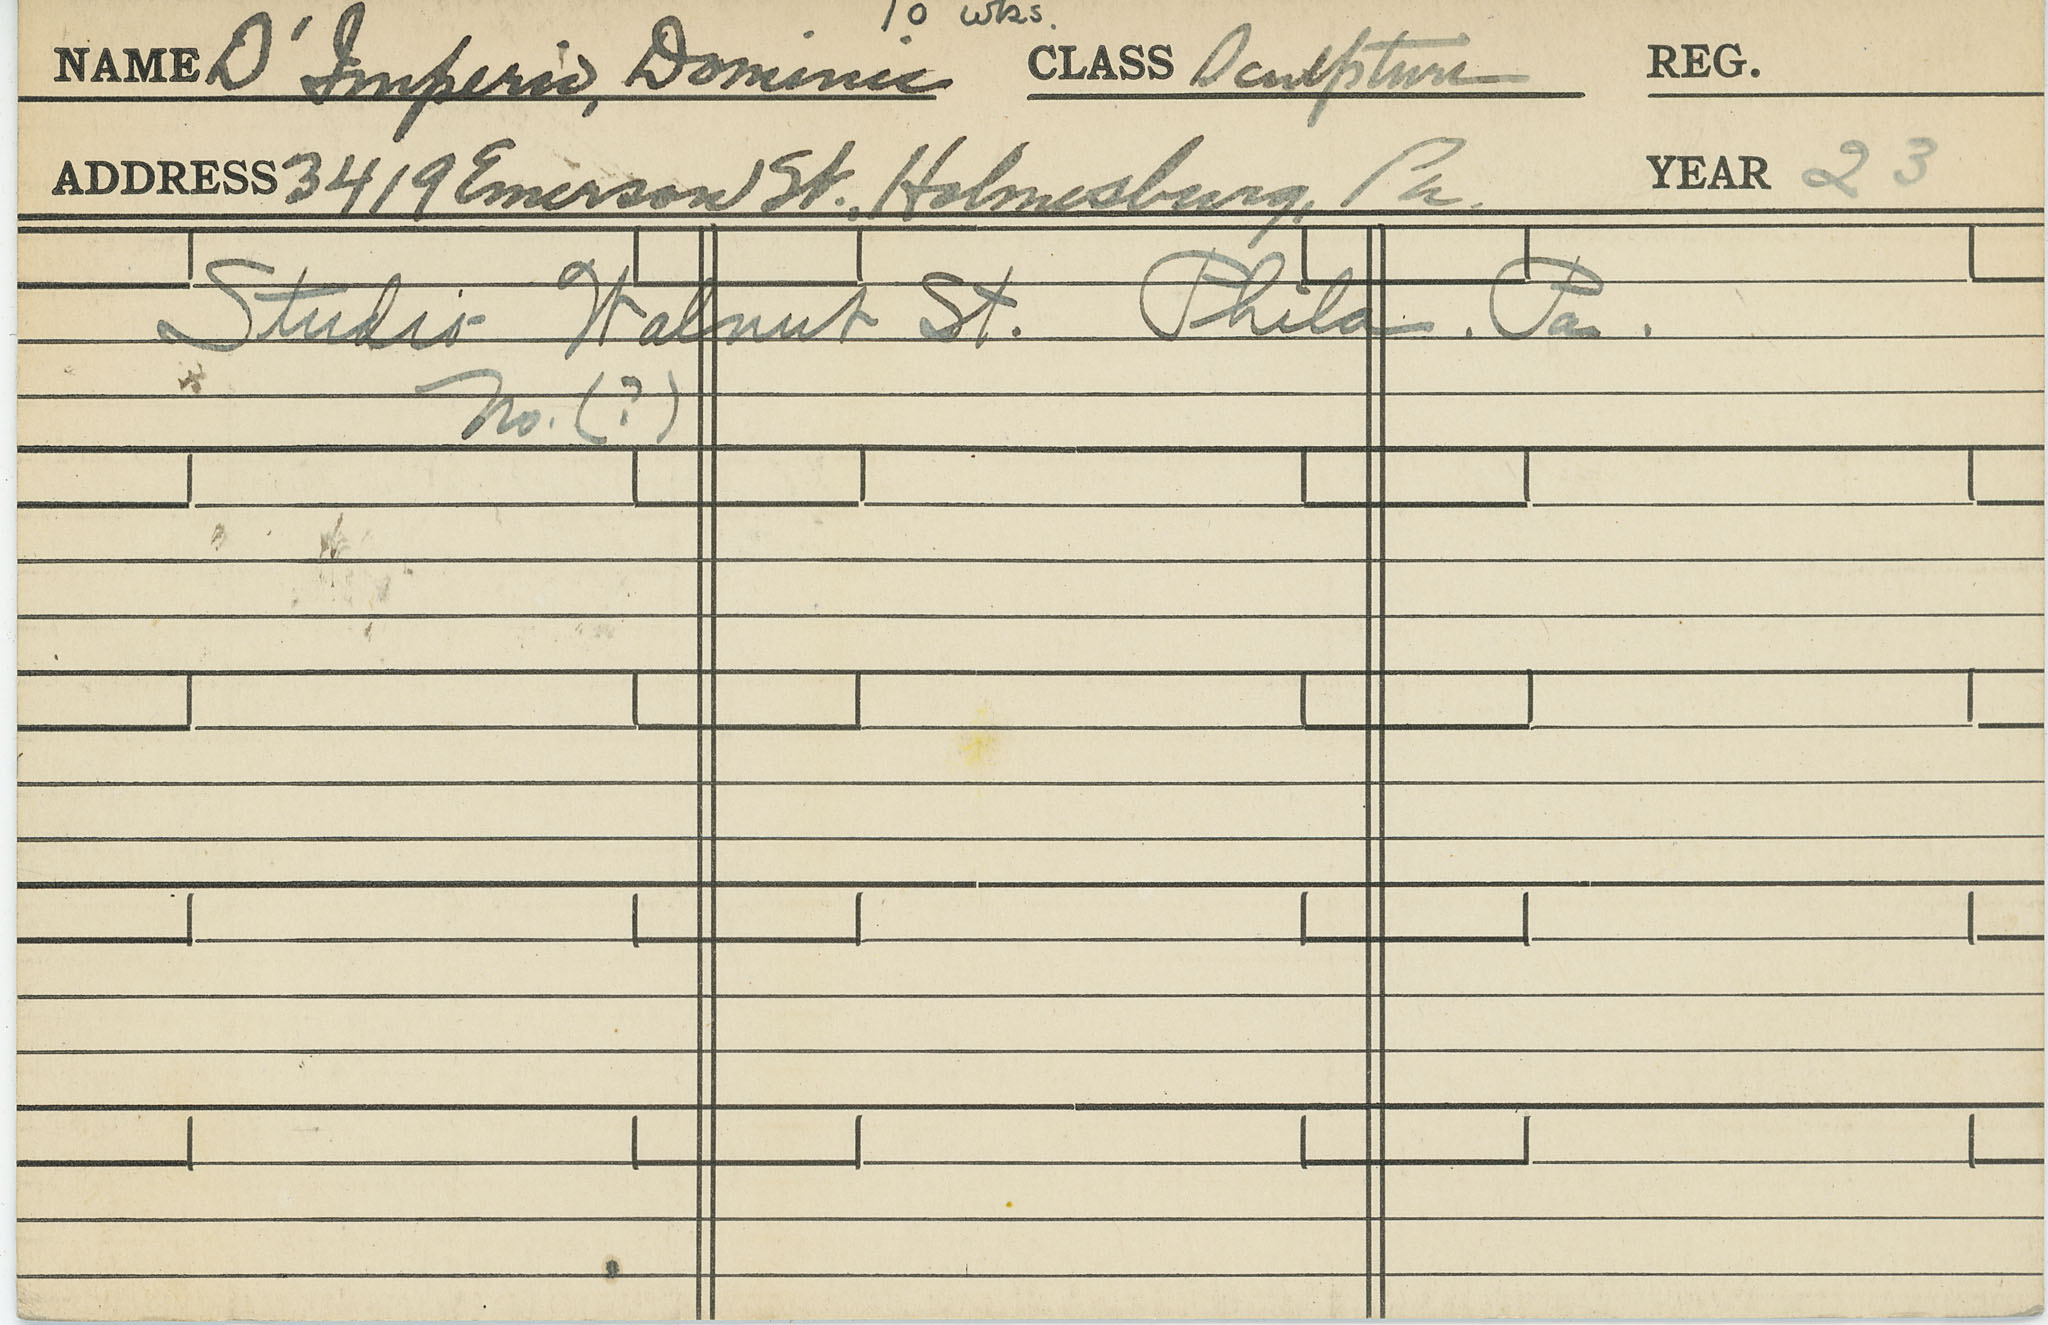 10 wks.
NAME D'Imperio, Dominic CLASS Sculpture REG.
ADDRESS 3419 Emerson St., Holmesburg, Pa. YEAR 23
Studio Walnut St. Phila. Pa.
No. (?)